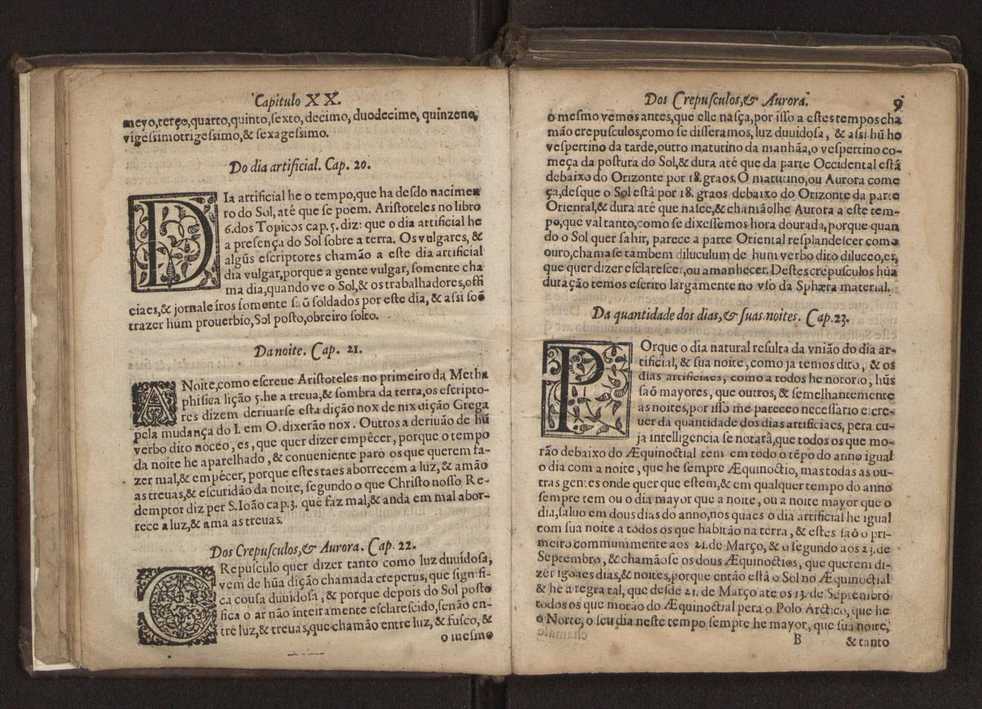 Capitulo XX.
meyo, terço, quarto, quinto, sexto, decimo, duodecimo, quinzeno,
vigessimo trigessimo, & sexagessimo.
Do dia artificial. Cap. 20.
DIa artificial he o tempo, que ha desdo nacimen
to do Sol, até que se poem. Aristoteles no libro
6. dos Topicos cap. 5. diz: que o dia artificial he
a presença do Sol sobre a terra. Os vulgares, &
algũs escriptores chamão a este dia artificial
dia vulgar, porque a gente vulgar, somente cha
ma dia, quando ve o Sol, & os trabalhadores, offi
ciaes, & jornaleiros somente saõ soldados por este dia, & assi soẽ
trazer hum prouerbio, Sol posto, obreiro solto.
Da noite. Cap. 21.
A Noite, como escreue Aristoteles no primeiro da Metha
phisica lição 5. he a treua, & sombra da terra, os escripto-
res dizem deriuarse esta dição nox de nix dição Grega
pela mudança do I. em O. dixerão nox. Outros a deriuão de hũ
verbo dito noceo, es, que quer dizer empêcer, porque o tempo
da noite he aparelhado, & conueniente paro os que querem fa-
zer mal, & empêcer, porque estes taes aborrecem a luz, & amão
as treuas, & escuridão da noite, segundo o que Christo nosso Re-
demptor diz per S. Ioão cap. 3. que faz mal, & anda em mal abor-
rece a luz, & ama as treuas.
Dos Crepusculos, & Aurora. Cap. 22.
CRepusculo quer dizer tanto como luz duuidosa,
vem de hũa dição chamada creperus, que signifi
ca cousa duuidosa, & porque depois do Sol posto
fica o ar não inteiramente esclarescido, senão en-
tre luz, & treuas, que chamão entre luz, & fusco, &
o mesmo
Dos Crepusculos, & Aurora. 9
o mesmo vemos antes, que elle nasça, por isso a estes tempos cha
mão crepusculos, como se disseramos, luz duuidosa, & assi hũ he
vespertino da tarde, outro matutino da manhãa, o vespertino co-
meça da postura do Sol, & dura até que da parte Occidental està
debaixo do Orizonte por 18. graos. O matutino, ou Aurora come
ça, desque o Sol està por 18. graos debaixo do Orizonte da parte
Oriental, & dura até que nasce, & chamãolhe Aurora a este tem-
po, que val tanto, como se dixessemos hora dourada, porque quan
do o Sol quer sahir, parece a parte Oriental resplandescer como
ouro, chamase tambem diluculum de hum verbo dito diluceo, es,
que quer dizer esclarescer, ou amanhecer. Destes crepusculos hũa
duração temos escrito largamente no vso da Sphæra material.
Da quantidade dos dias, & suas noites. Cap. 23.
POrque o dia natural resulta da vnião do dia ar-
tificial, & sua noite, como ja temos dito, & os
dias artificiaes, como a todos he notorio, hũs
saõ mayores, que outros, & semelhantemente
as noites, por isso me pareceo necessario escre-
uer da quantidade dos dias artificiaes, pera cu-
ja intelligencia se notarà, que todos os que mo-
rão debaixo do Æquinoctial tem em todo o têpo do anno igual
o dia com a noite, que he sempre Æquinoctio, mas todas as ou-
tras gentes onde quer que estem, & em qualquer tempo do anno
sempre tem ou o dia mayor que a noite, ou a noite mayor que o
dia, saluo em dous dias do anno, nos quaes o dia artificial he igual
com sua noite a todos os que habitão na terra, & estes saõ o pri-
meiro communimente aos 21. de Março, & o segundo aos 23. de
Septembro, & chamãose os dous Æquinoctios, que querem di-
zer igoaes dias, & noites, porque então està o Sol no Æquinoctial
& he a regra tal, que desde 21. de Março até os 23. de Septembro
todos os que morão do Æquinoctial pera o Polo Arctico, que he
o Norte, o seu dia neste tempo sempre he mayor, que sua noite,
B & tanto